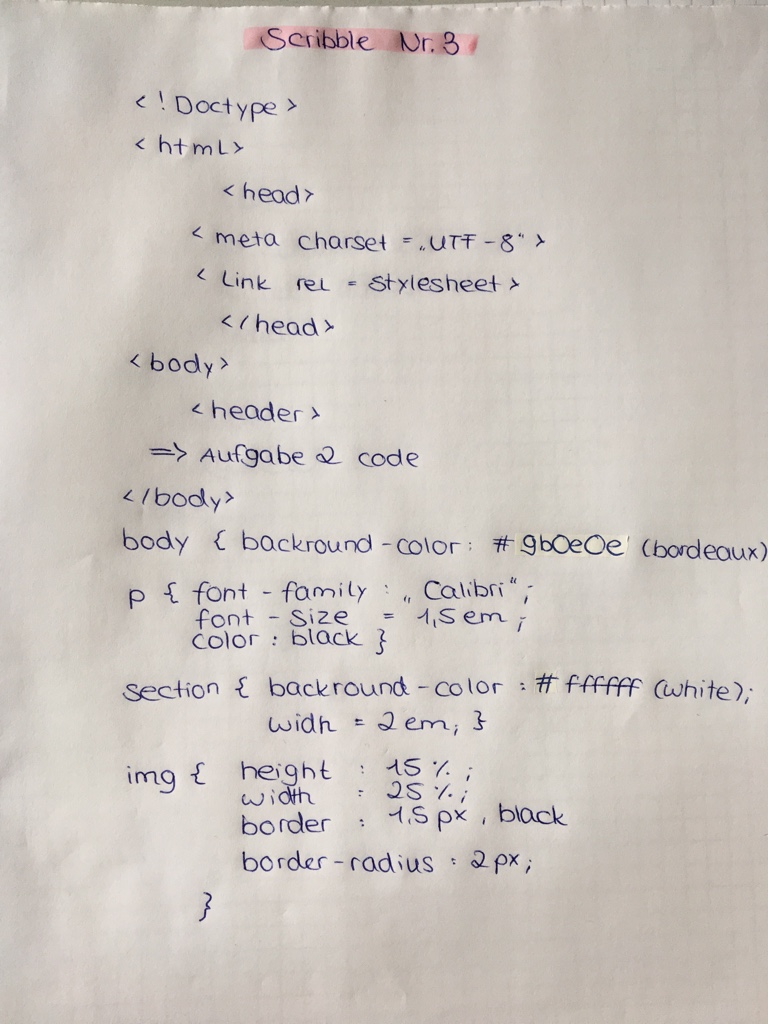 Scribble Nr. 3
<!Doctype>
<html>
<head>
<meta charset = „UTF-8“>
<Link rel = stylesheet>
</head>
<body>
<header>
=> Aufgabe 2 code
</body>
body { backround-color: #9b0e0e (bordeaux)
p { font-family : „Calibri“;
font-size = 1,5 em;
color : black }
section { backround-color : #ffffff (white);
widh = 2 em; }
img { height : 15 %;
width : 25 %;
border : 1,5 px, black
border-radius : 2 px;
}